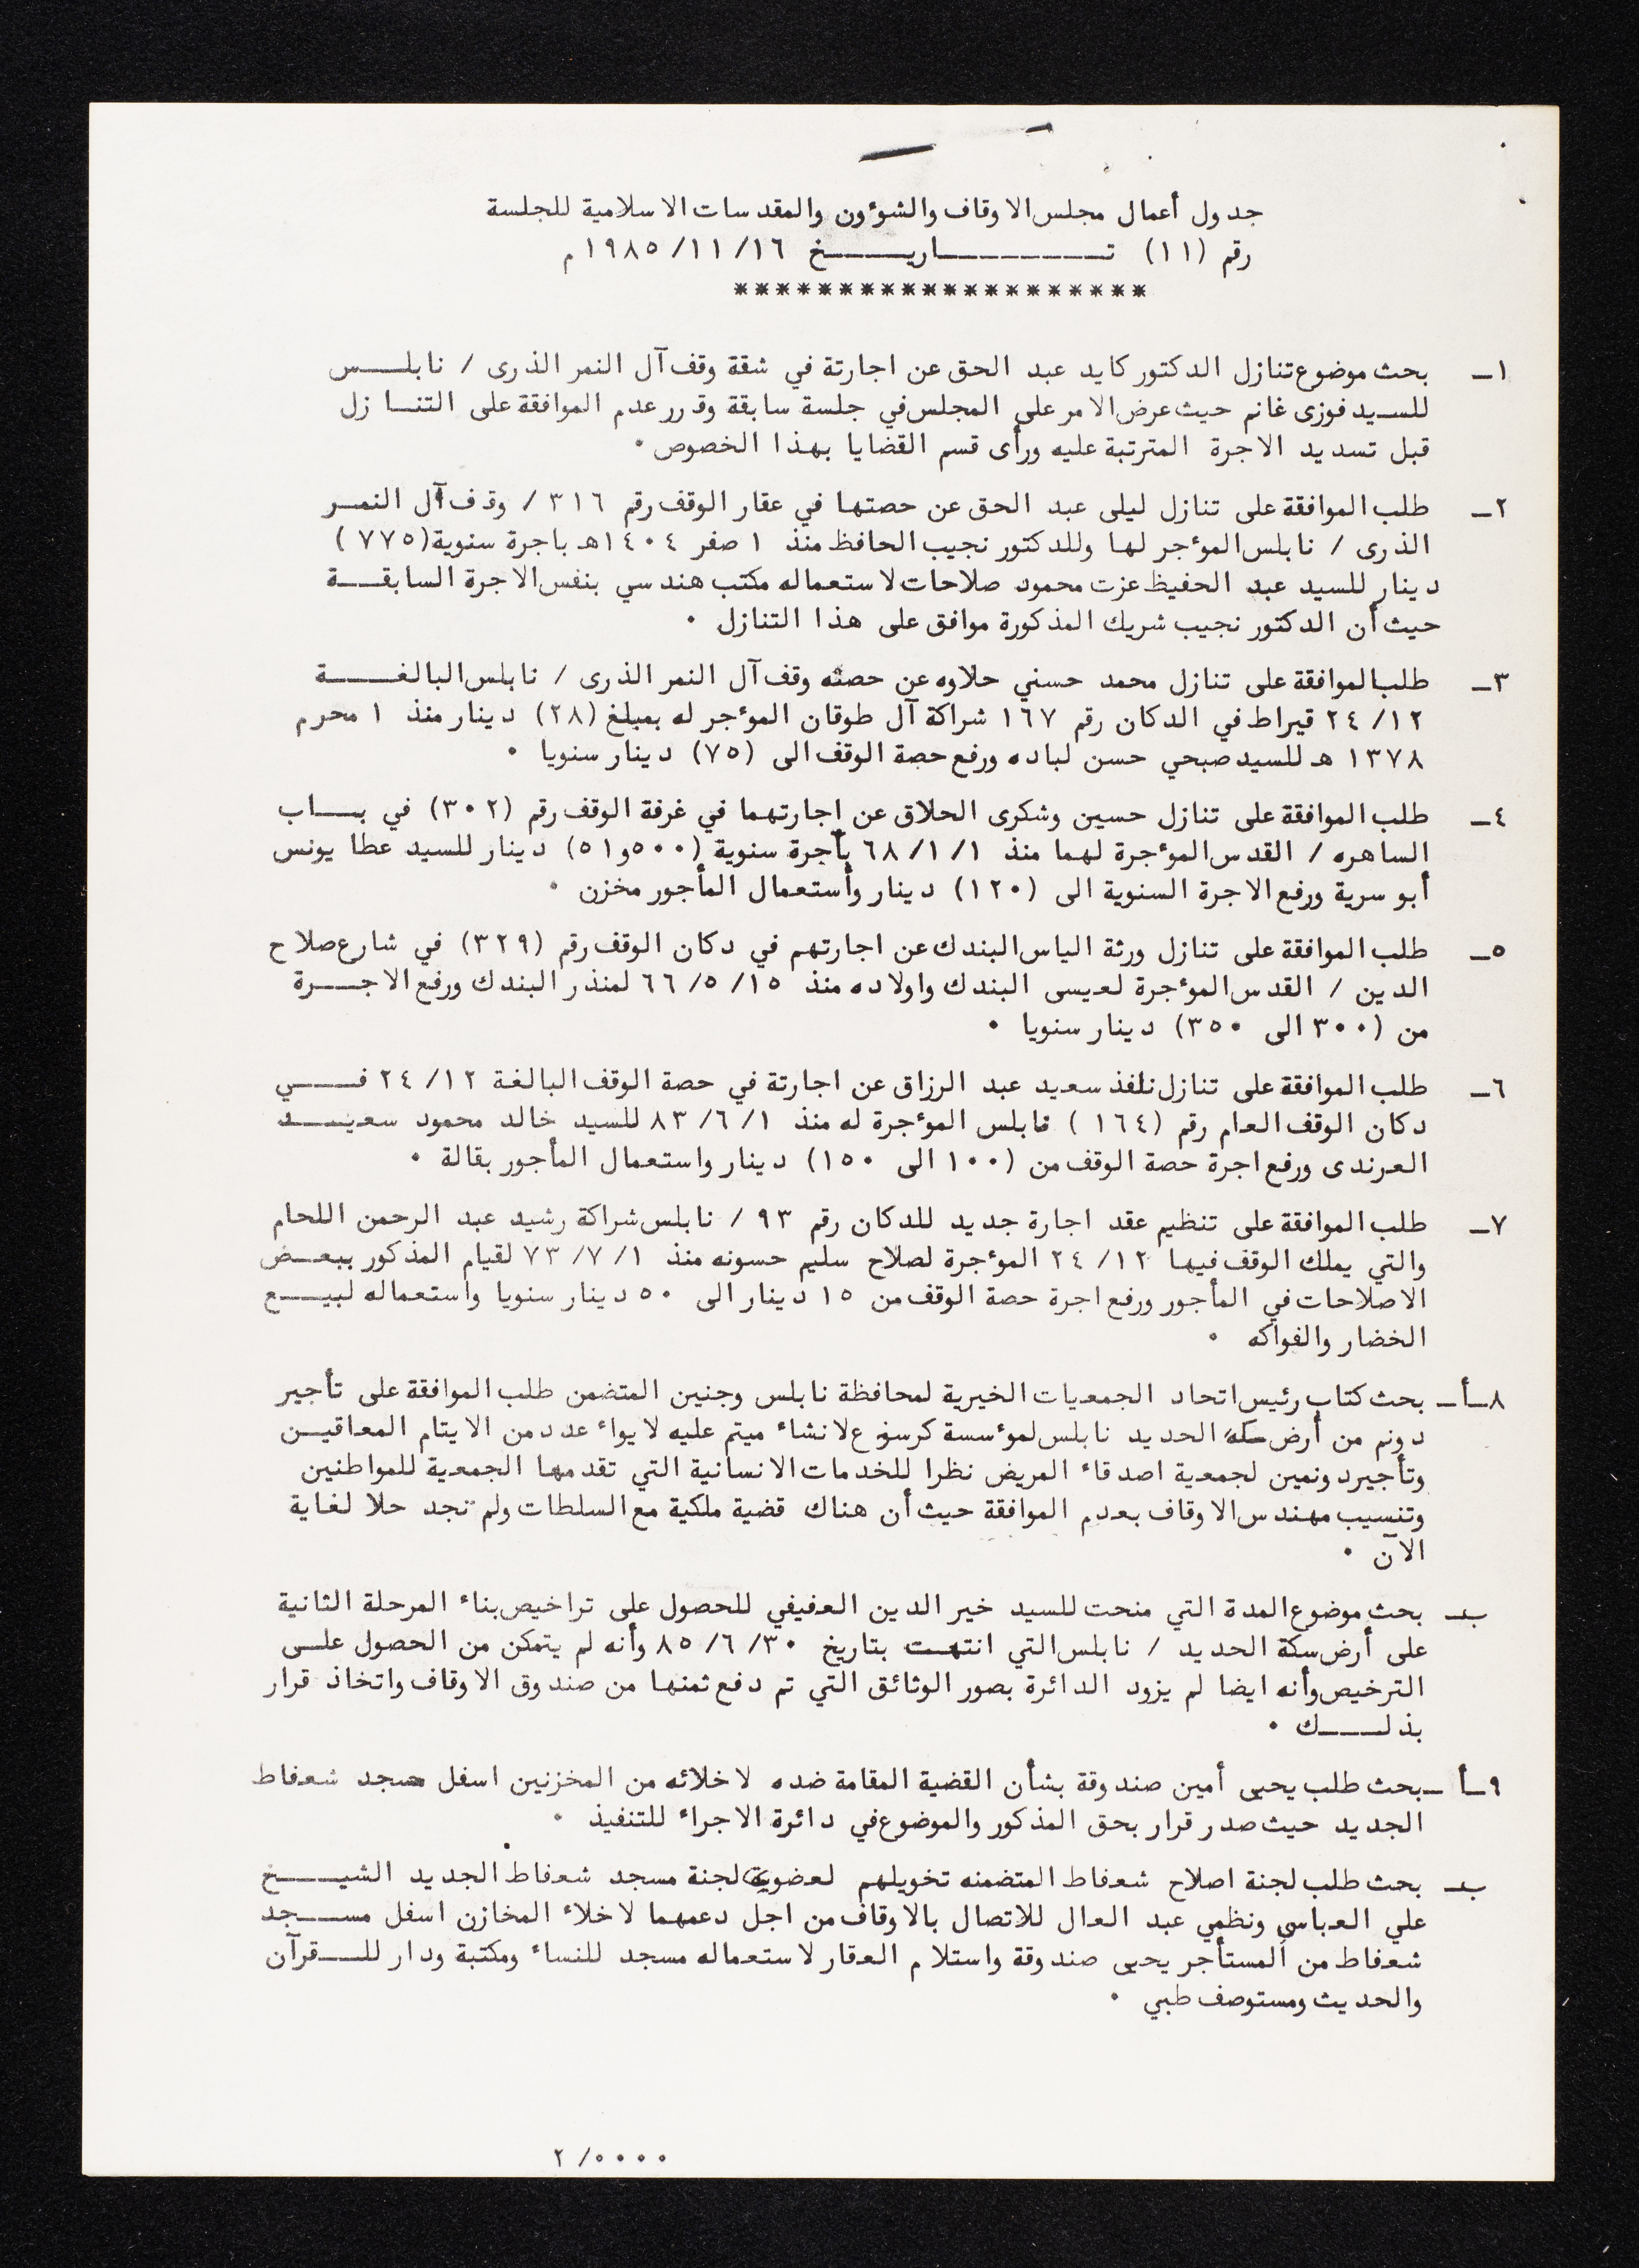 جدول أعمال مجلس الاوقاف والشوءون والمقدسات الاسلامية للجلسة
رقم (١١) تـــــــاريــــخ ١٦/١١/١٩٨٥م
********************
١ــ بحث موضوع تنازل الدكتور كايد عبد الحق عن اجارتة في شقة وقف آل النمر الذرى / نابلــــس
للسـيد فوزى غانم حيث عرض الامر على المجلس في جلسة سابقة وقرر عدم الموافقة على التنـازل
قبل تسديد الاجرة المترتبة عليه ورأى قسم القضايا بهذا الخصوص ٠
٢ــ طلب الموافقة على تنازل ليلى عبد الحق عن حصتها في عقار الوقف رقم ٣١٦ / وقف آل النمـر
الذرى / نابلس الموءجر لها وللدكتور نجيب الحافظ منذ ١ صفر ١٤٠٤هـ باجرة سنوية (٧٧٥)
دينار للسيد عبد الحفيظ عزت محمود صلاحات لاستعماله مكتب هندسي بنفس الاجرة السابقــة
حيث أن الدكتور نجيب شريك المذكورة موافق على هذا التنازل ٠
٣ــ طلب الموافقة على تنازل محمد حسني حلاوه عن حصته وقف آل النمر الذرى / نابلس البالغــــة
٢٤/١٢ قيراط في الدكان رقم ١٦٧ شراكة آل طوقان الموءجر له بمبلغ (٢٨) دينار منذ ١ محرم
١٣٧٨ هـ للسيد صبحي حسن لباده ورفع حصة الوقف الى (٧٥) دينار سنويا ٠
٤ــ طلب الموافقة على تنازل حسين وشكرى الحلاق عن اجارتهما في غرفة الوقف رقم (٣٠٢) في بــاب
الساهره / القدس الموءجرة لهما منذ ٦٨/١/١ بأجرة سنوية (٥٠٠و٥١) دينار للسيد عطا يونس
أبو سرية ورفع الاجرة السنوية الى (١٢٠) دينار وأستعمال المأجور مخزن ٠
٥ــ طلب الموافقة على تنازل ورثة الياس البندك عن اجارتهم في دكان الوقف رقم (٣٢٩) في شارع صلاح
الدين / القدس الموءجرة لعيسى البندك واولاده منذ ٦٦/٥/١٥ لمنذر البندك ورفع الاجــــرة
من (٣٠٠ الى ٣٥٠) دينار سنويا ٠
٦ــ طلب الموافقة على تنازل نافذ سعيد عبد الرزاق عن اجارتة في حصة الوقف البالغة ٢٤/١٢ فـــي
دكان الوقف العام رقم (١٦٤) نابلس الموءجرة له منذ ٨٣/٦/١ للسيد خالد محمود سعيـــد
العرندى ورفع اجرة حصة الوقف من (١٠٠ الى ١٥٠) دينار واستعمال المأجور بقالة ٠
٧ــ طلب الموافقة على تنظيم عقد اجارة جديد للدكان رقم ٩٣ / نابلس شراكة رشيد عبد الرحمن اللحام
والتي يملك الوقف فيها ٢٤/١٢ الموءجرة لصلاح سليم حسونه منذ ٧٣/٧/١ لقيام المذكور ببعـض
الاصلاحات في المأجور ورفع اجرة حصة الوقف من ١٥ دينار الى ٥٠ دينار سنويا واستعماله لبيـــع
الخضار والفواكه ٠
٨ــأــ بحث كتاب رئيس اتحاد الجمعيات الخيرية لمحافظة نابلس وجنين المتضمن طلب الموافقة على تأجير
دونم من أرض سكة الحديد نابلس لموءسسة كرسوع لانشاء ميتم عليه لايواء عدد من الايتام المعاقيـن
وتأجير دونمين لجمعية اصدقاء المريض نظرا للخدمات الانسانية التي تقدمها الجمعية للمواطنين
وتنسيب مهندس الاوقاف بعدم الموافقة حيث أن هناك قضية ملكية مع السلطات ولم تجد حلا لغاية
الآن ٠
بــ بحث موضوع المدة التي منحت للسيد خير الدين العفيفي للحصول على تراخيص بناء المرحلة الثانية
على أرض سكة الحديد / نابلس التي انتهت بتاريخ ٨٥/٦/٣٠ وأنه لم يتمكن من الحصول علـى
الترخيص وأنه ايضا لم يزود الدائرة بصور الوثائق التي تم دفع ثمنها من صندوق الاوقاف واتخاذ قرار
بذلــــك ٠
٩ــأ ــ بحث طلب يحيى أمين صندوقة بشأن القضية المقامة ضده لاخلائه من المخزنين اسفل مسجد شعفاط
الجديد حيث صدر قرار بحق المذكور والموضوع في دائرة الاجراء للتنفيذ ٠
بــ بحث طلب لجنة اصلاح شعفاط المتضمنه تخويلهم لعضوية لجنة مسجد شعفاط الجديد الشيــــخ
علي العباسي ونظمي عبد العال للاتصال بالاوقاف من اجل دعمهما لاخلاء المخازن اسفل مســجد
شعفاط من المستأجر يحيى صندوقة واستلام العقار لاستعماله مسجد للنساء ومكتبة ودار للــقرآن
والحديث ومستوصف طبي ٠
٢/٠٠٠٠